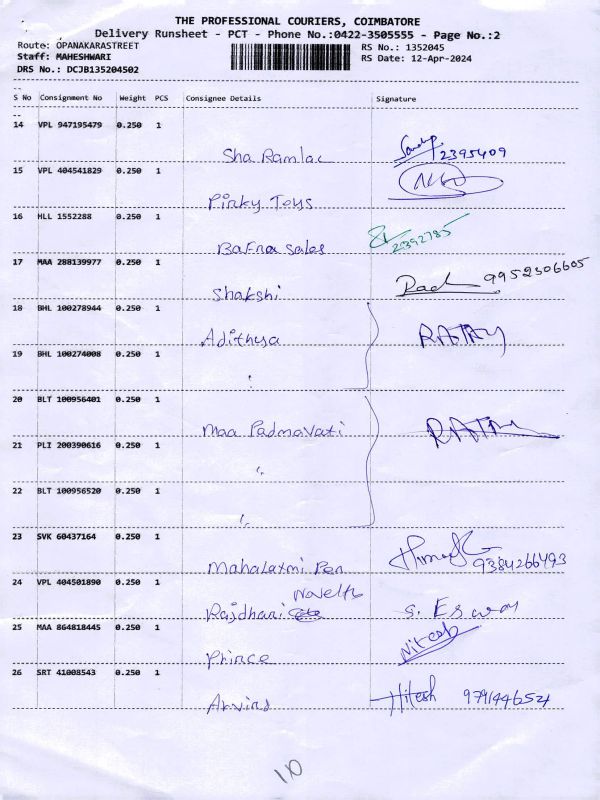 THE PROFESSIONAL COURIERS, COIMBATORE
Delivery Runsheet - PCT - Phone No.:0422-3505555 - Page No.:2
Route: OPANAKARASTREET RS No.: 1352045
Staff: MAHESHWARI RS Date: 12-Apr-2024
DRS No.: DCJB135204502
S No Consignment No Weight PCS Consignee Details Signature
14 VPL 947195479 0.250 1
Sha Ramlal 2395409
15 VPL 404541829 0.250 1
Pinky Toys
16 HLL 1552288 0.250 1
Bafna Sales 2392785
17 MAA 288139977 0.250 1
Shakshi 9952306605
18 BHL 100278944 0.250 1
Adithya
19 BHL 100274008 0.250 1
"
20 BLT 100956401 0.250 1
Maa Padmavati
21 PLI 200390616 0.250 1
"
22 BLT 100956520 0.250 1
"
23 SVK 60437164 0.250 1
Mahalaxmi Pen 9384266493
24 VPL 404501890 0.250 1
Novelty
Rajdhani S. Eswar
25 MAA 864818445 0.250 1
Prince Nitesh
26 SRT 41008543 0.250 1
Arvind Hitesh 9791446254
10